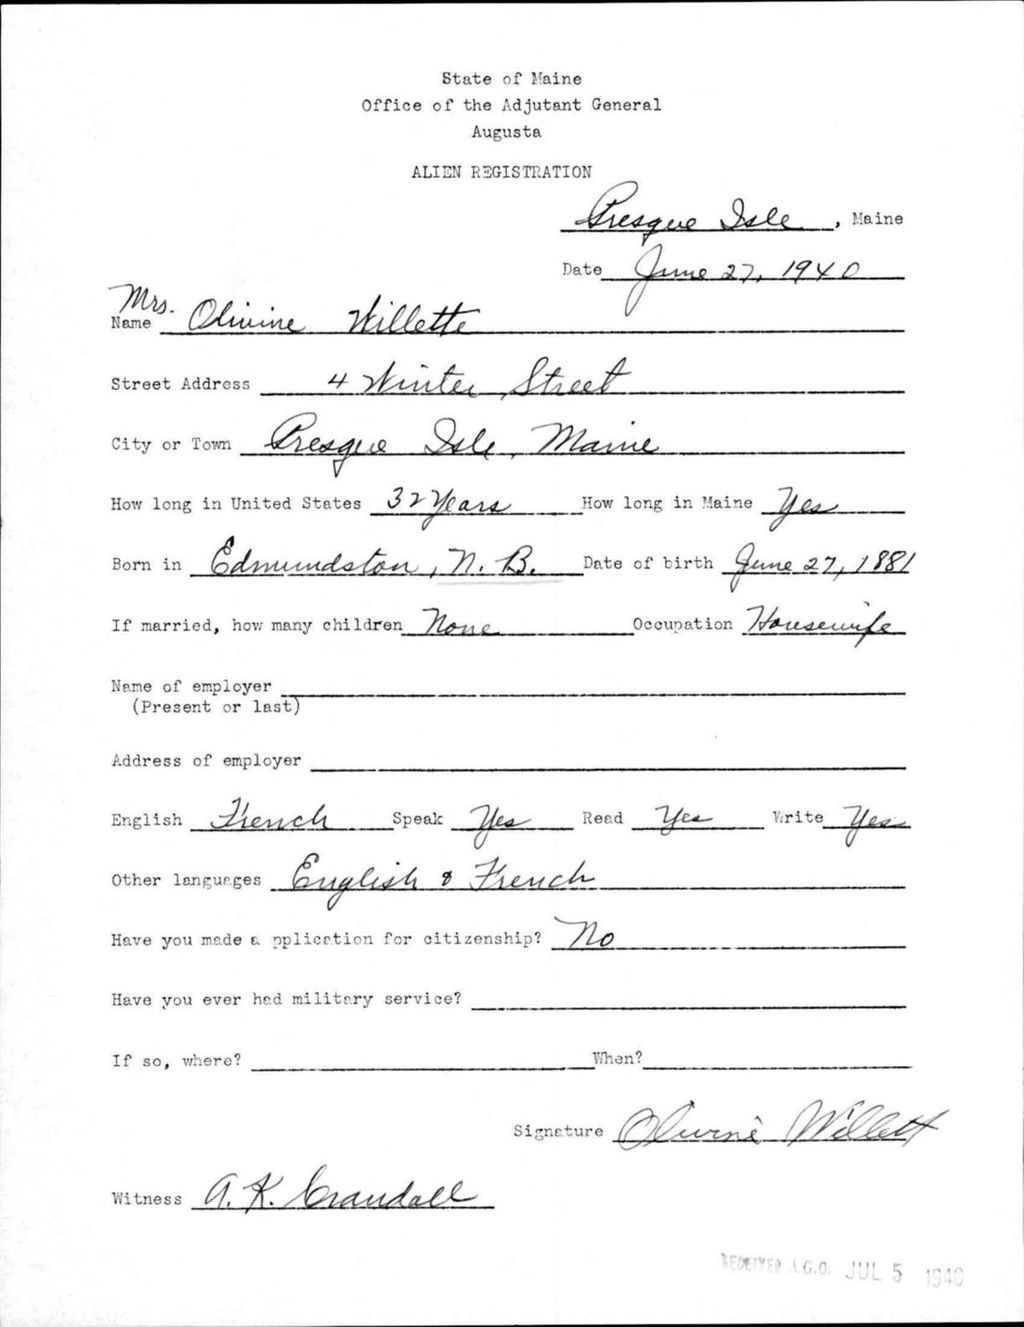 State of Maine
Office of the Adjutant General
Augusta
ALIEN REGISTRATION
Presque Isle, Maine
Date June 27, 1940
Mrs.
Name Olivine Willette
Street Address 4 Winter Street
City or Town Presque Isle, Maine
How long in United States 32 Years How long in Maine Yes
Born in Edmundston, N. B. Date of birth June 27, 1881
If married, how many children None Occupation Housewife
Name of employer
(Present or last)
Address of employer
English French Speak Yes Read Yes Write Yes
Other languages English & French
Have you made a pplication for citizenship? No
Have you ever had military service?
If so, where? When?
Signature Olivine Willett
Witness A. K. Crandall
RECEIVED A.G.O. JUL 5 1940